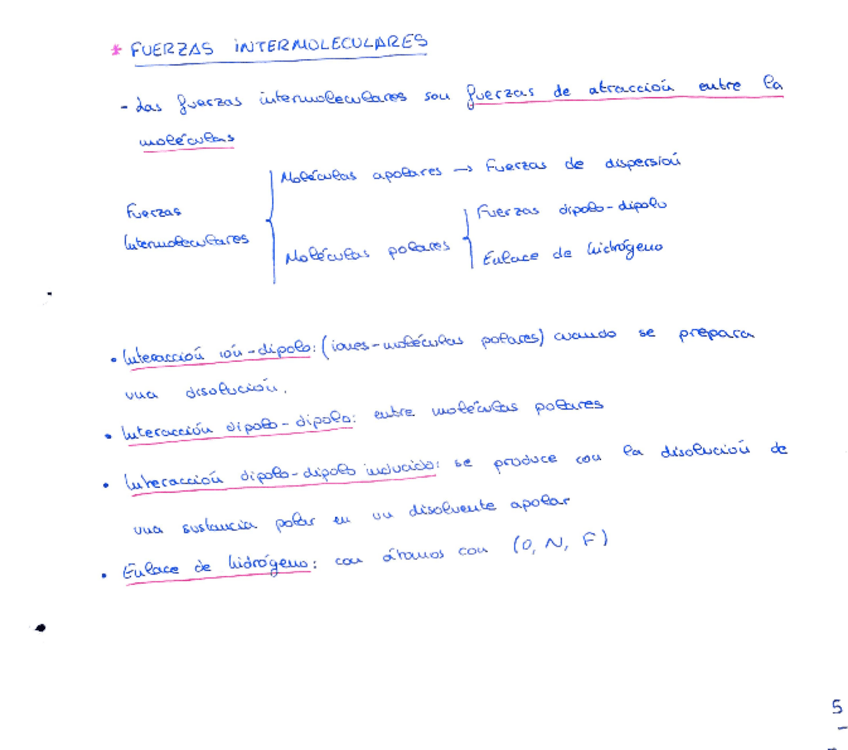 * FUERZAS INTERMOLECULARES
- Las fuerzas intermoleculares son fuerzas de atracción entre la
moléculas
Moléculas apolares → Fuerzas de dispersión
Fuerzas
Intermoleculares
Fuerzas dipolo-dipolo
Moléculas polares
Enlace de hidrógeno
• Interacción ión-dipolo: (iones-moléculas polares) cuando se prepara
una disolución.
• Interacción dipolo-dipolo: entre moléculas polares
• Interacción dipolo-dipolo inducido: se produce con la disolución de
una sustancia polar en un disolvente apolar
• Enlace de hidrógeno: con átomos con (O, N, F)
5